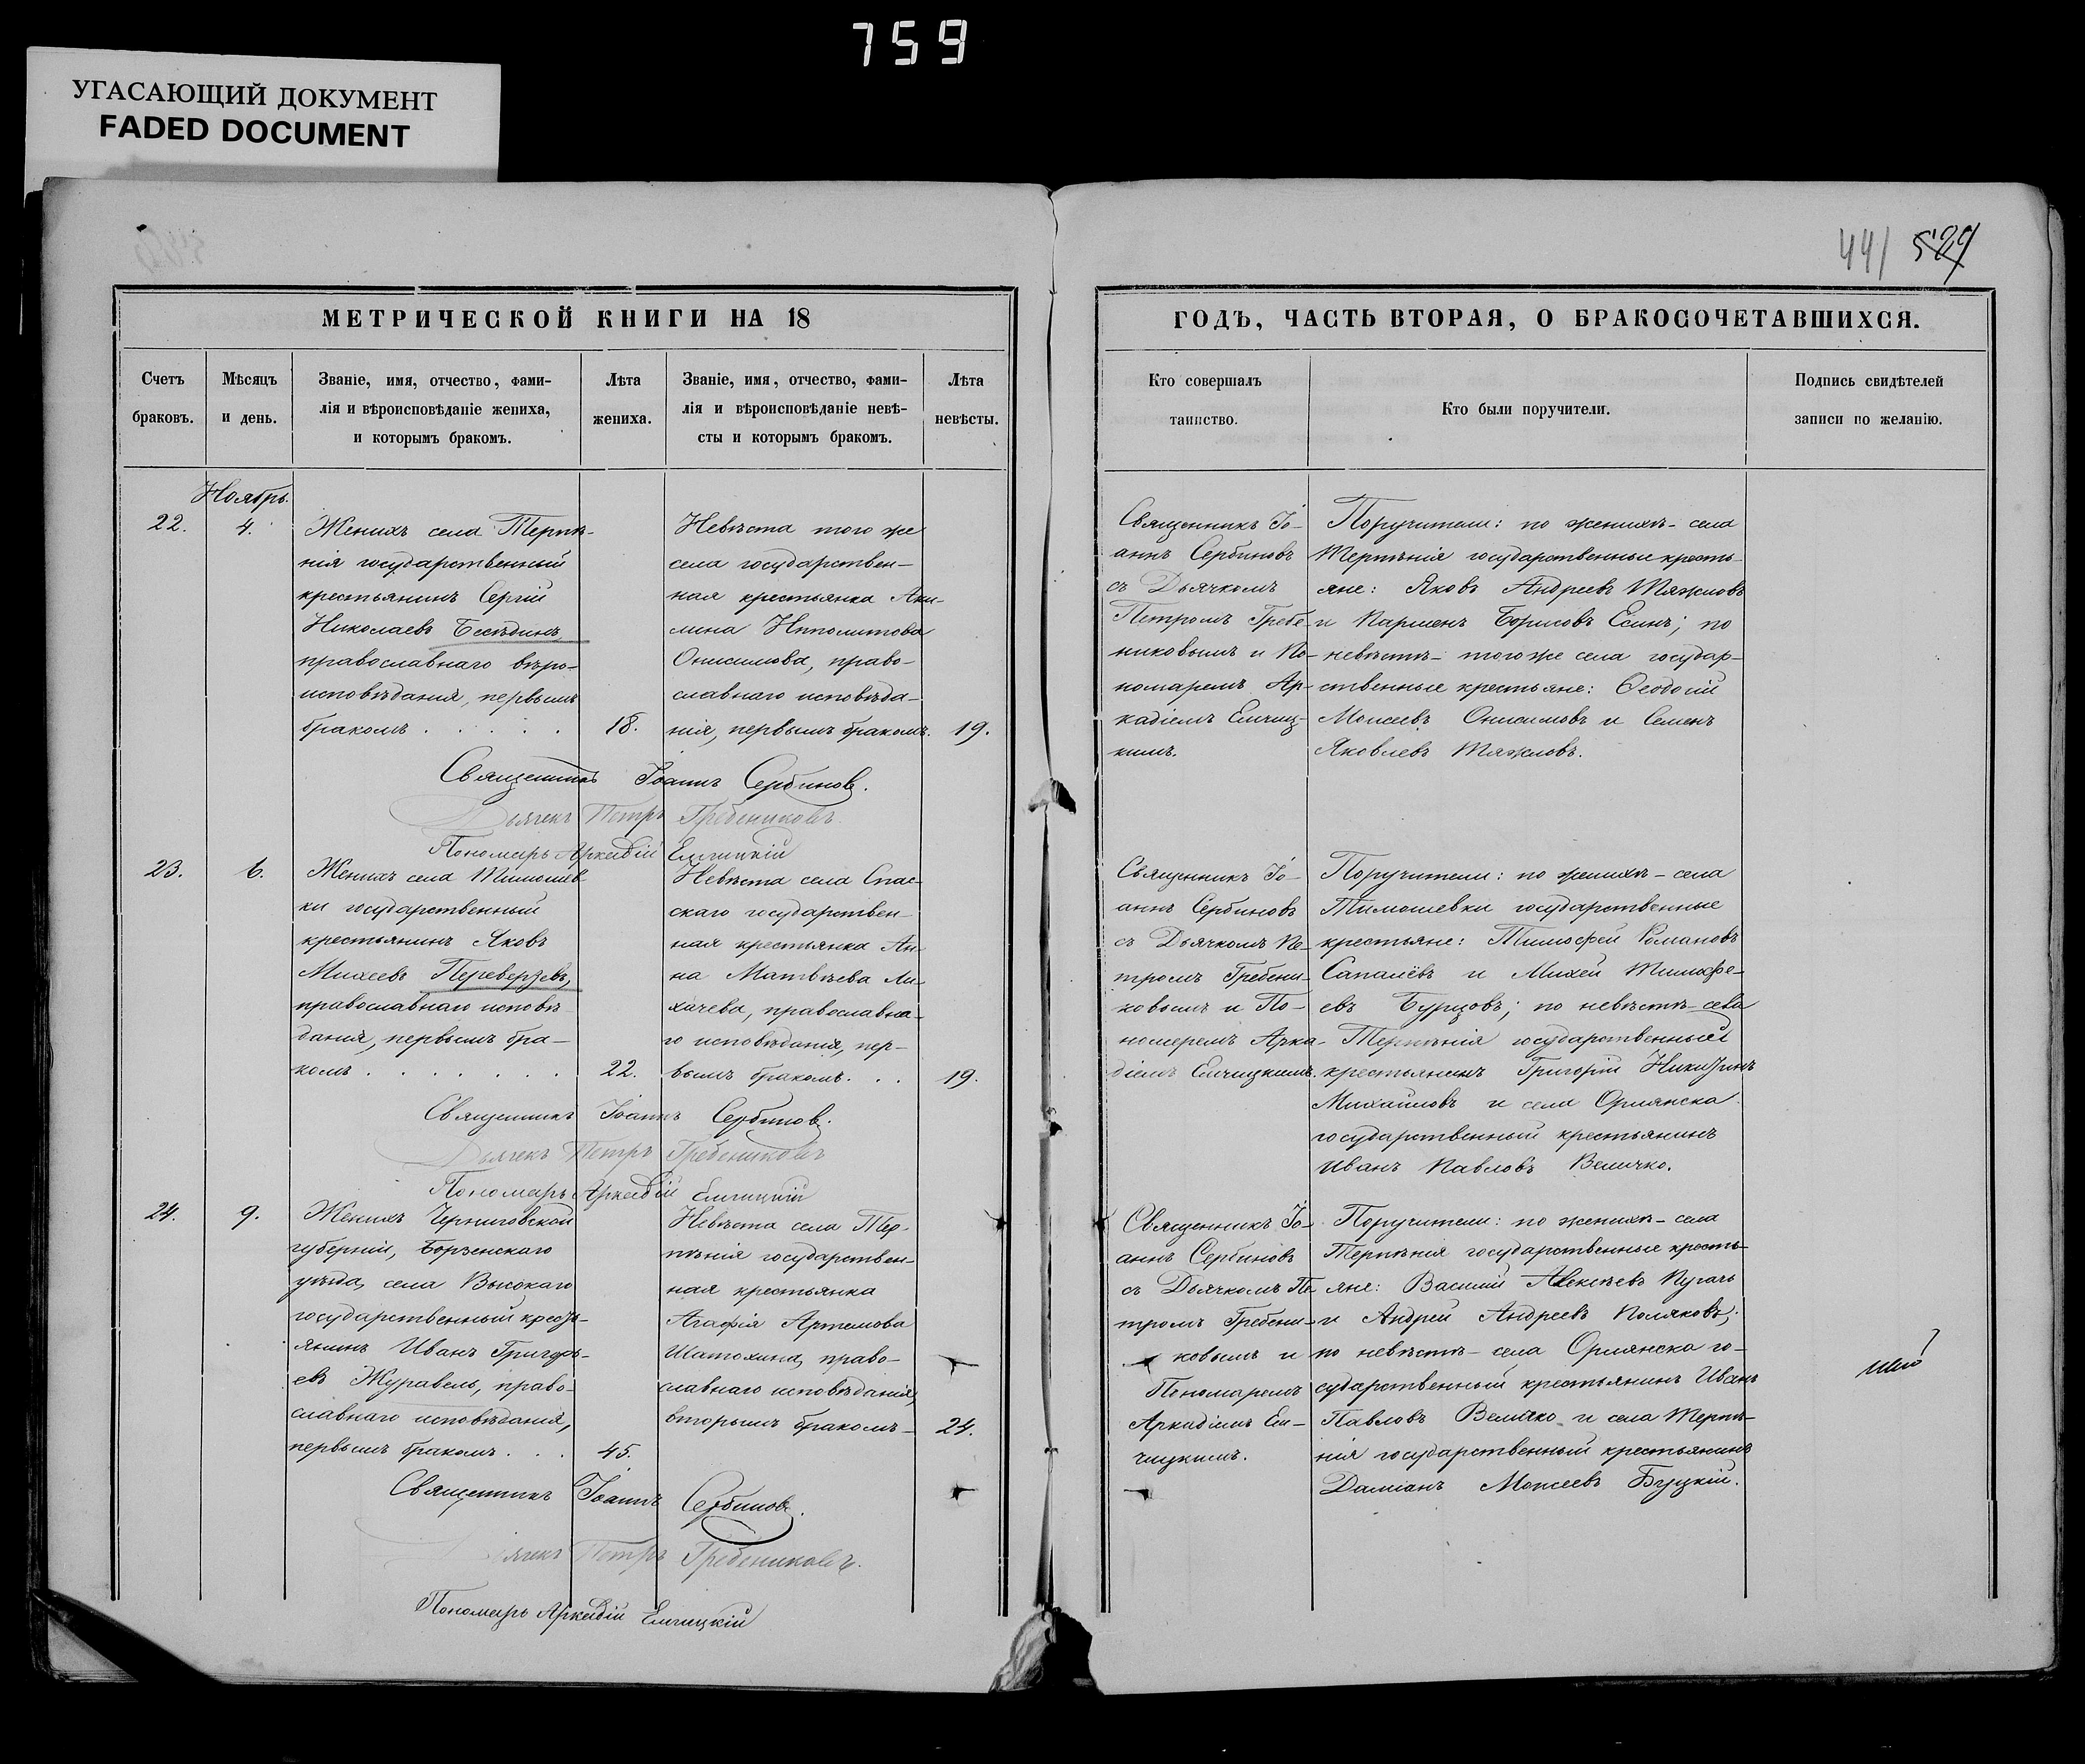 759
УГАСАЮЩИЙ ДОКУМЕНТ
FADED DOCUMENT
441 529
МЕТРИЧЕСКОЙ КНИГИ НА 18
Счетъ браковъ.
Мѣсяцъ и день.
Званіе, имя, отчество, фами-
лія и вѣроисповѣданіе жениха,
и которымъ бракомъ.
Лѣта жениха.
Званіе, имя, отчество, фами-
лія и вѣроисповѣданіе невѣ-
сты и которымъ бракомъ.
Лѣта невѣсты.
ГОДЪ, ЧАСТЬ ВТОРАЯ, О БРАКОСОЧЕТАВШИХСЯ.
Кто совершалъ
таинство.
Кто были поручители.
Подпись свидѣтелей
записи по желанію.
Ноябрь.
22.
4.
Женихъ села Терпѣ-
нія государственный
крестьянинъ Сергій
Николаевъ Бесѣдинъ,
православнаго вѣро-
исповѣданія, первымъ
бракомъ . . . . .
18.
Невѣста того же
села государствен-
ная крестьянка Аки-
лина Ипполитова
Онисимова, право-
славнаго исповѣда-
нія, первымъ бракомъ.
19.
Священникъ Іо-
аннъ Сербиновъ
съ Дьячкомъ
Петромъ Гребе-
никовымъ и По-
номаремъ Ар-
кадіемъ Емчиц-
кимъ.
Поручители: по женихѣ - села
Терпѣнія государственные кресть-
яне: Яковъ Андреевъ Тяжловъ
и Парменъ Борисовъ Есинъ; по
невѣстѣ - того же села государ-
ственные крестьяне: Ѳеодосій
Моисеевъ Онисимовъ и Семенъ
Яковлевъ Тяжловъ.
Священникъ Іоаннъ Сербиновъ.
Дьячекъ Петръ Гребениковъ
Пономарь Аркадій Емчицкій
23.
6.
Женихъ села Тимошев
ки государственный
крестьянинъ Яковъ
Михеевъ Переверзевъ,
православнаго исповѣ
данія, первымъ бра-
комъ . . . . . . .
22.
Невѣста села Спас-
скаго государствен-
ная крестьянка Ан-
на Матвѣева Ли-
хачева, православна-
го исповѣданія, пер-
вымъ бракомъ. . .
19.
Священникъ Іо-
аннъ Сербиновъ
съ Дьячкомъ Пе-
тромъ Гребени-
ковымъ и По-
номаремъ Арка-
діемъ Емчицкимъ.
Поручители: по женихѣ - села
Тимошевки государственные
крестьяне: Тимофей Романовъ
Сапалёвъ и Михей Тимофе-
евъ Бурцовъ; по невѣстѣ - села
Терпѣнія государственный
крестьянинъ Григорій Никитинъ
Михайловъ и села Орлянска
государственный крестьянинъ
Иванъ Павловъ Величко.
Священникъ Іоаннъ Сербиновъ.
Дьячекъ Петръ Гребениковъ
Пономарь Аркадій Емчицкій
24.
9.
Женихъ Черниговской
губерніи, Борзенскаго
уѣзда, села Высокаго
государственный кресть-
янинъ Иванъ Григорь-
евъ Журавель, право-
славнаго исповѣданія,
первымъ бракомъ . . .
45.
Невѣста села Тер-
пѣнія государствен-
ная крестьянка
Агафія Артемова
Шатохина, право-
славнаго исповѣданія,
вторымъ бракомъ -
24.
Священникъ Іо-
аннъ Сербиновъ
съ Дьячкомъ Пе
тромъ Гребени-
ковымъ и
Пономаремъ
Аркадіемъ Ем-
чицкимъ.
Поручители: по женихѣ - села
Терпѣнія государственные кресть-
яне: Василій Алексѣевъ Пугачь
и Андрей Андреевъ Поляковъ;
по невѣстѣ - села Орлянска го-
сударственный крестьянинъ Иванъ
Павловъ Величко и села Терпѣ-
нія государственный крестьянинъ
Даміанъ Моисеевъ Буцкій.
Священникъ Іоаннъ Сербиновъ.
Дьячекъ Петръ Гребениковъ.
Пономарь Аркадій Емчицкій